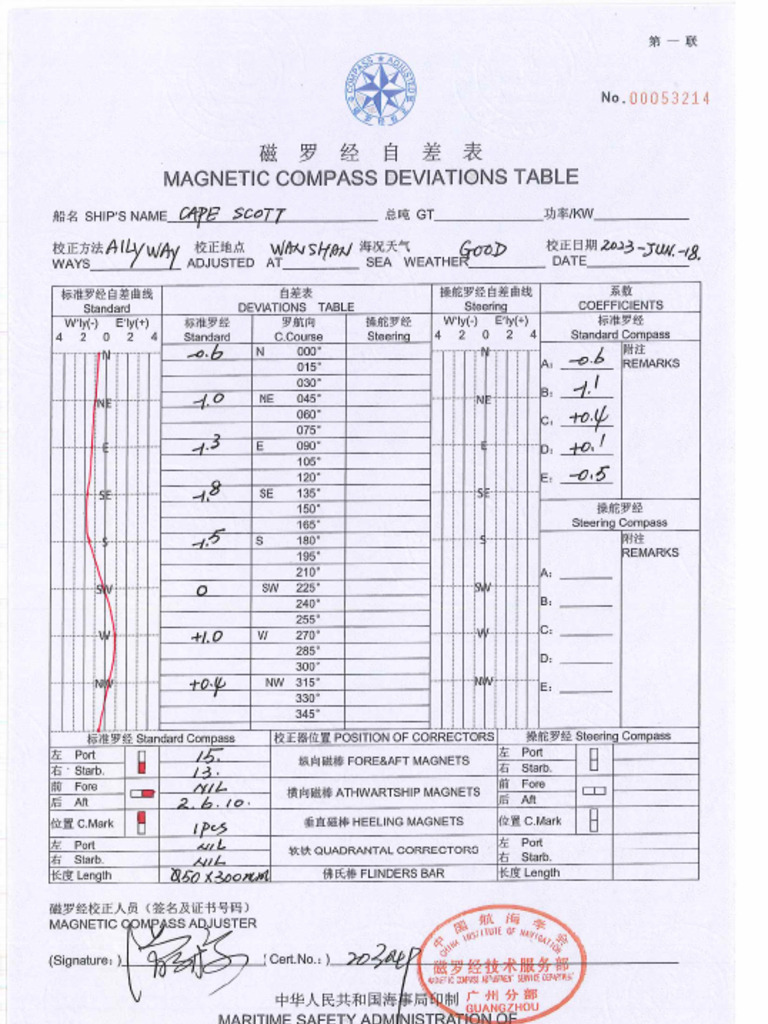 第 一 联
COMPASS ★ ADJUSTED
No.00053214
磁 罗 经 自 差 表
MAGNETIC COMPASS DEVIATIONS TABLE
船名 SHIP'S NAME CAPE SCOTT 总吨 GT 功率/KW
校正方法 校正地点 WANSHAN 海况天气 GOOD 校正日期 2023-JUN.-18.
WAYS ADJUSTED AT SEA WEATHER DATE
标准罗经自差曲线 自差表 操舵罗经自差曲线 系数
Standard DEVIATIONS TABLE Steering COEFFICIENTS
W'ly(-) E'ly(+) 标准罗经 罗航向 操舵罗经 W'ly(-) E'ly(+) 标准罗经
4 2 0 2 4 Standard C.Course Steering 4 2 0 2 4 Standard Compass
N -0.6 N 000° N 附注
015° A: -0.6 REMARKS
030° B: -1.1
NE -1.0 NE 045° NE
060° C: +0.4
075°
E -1.3 E 090° E D: +0.1
105°
120° E: -0.5
SE -1.8 SE 135° SE
150° 操舵罗经
165° Steering Compass
S -1.5 S 180° S 附注
195° REMARKS
210° A:
SW 0 SW 225° SW
240° B:
255° C:
W +1.0 W 270° W
285° D:
300°
NW +0.4 NW 315° NW E:
330°
345°
标准罗经 Standard Compass 校正器位置 POSITION OF CORRECTORS 操舵罗经 Steering Compass
左 Port 15. 纵向磁棒 FORE&AFT MAGNETS 左 Port
右 Starb. 13. 右 Starb.
前 Fore NIL 横向磁棒 ATHWARTSHIP MAGNETS 前 Fore
后 Aft 2.6.10. 后 Aft
位置 C.Mark 1pcs 垂直磁棒 HEELING MAGNETS 位置 C.Mark
左 Port NIL 软铁 QUADRANTAL CORRECTORS 左 Port
右 Starb. NIL 右 Starb.
长度 Length Ø50X300mm 佛氏棒 FLINDERS BAR 长度 Length
磁罗经校正人员（签名及证书号码）
MAGNETIC COMPASS ADJUSTER
(Signature: ) (Cert.No.: )
中国航海学会
CHINA INSTITUTE OF NAVIGATION
磁罗经技术服务部
MAGNETIC COMPASS ADJUSTMENT SERVICE DEPARTMENT
广州分部
GUANGZHOU
中华人民共和国海事局印制
MARITIME SAFETY ADMINISTRATION OF